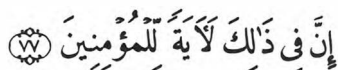 إِنَّ فِى ذَٰلِكَ لَـَٔايَةً لِّلْمُؤْمِنِينَ ﴿٧٧﴾